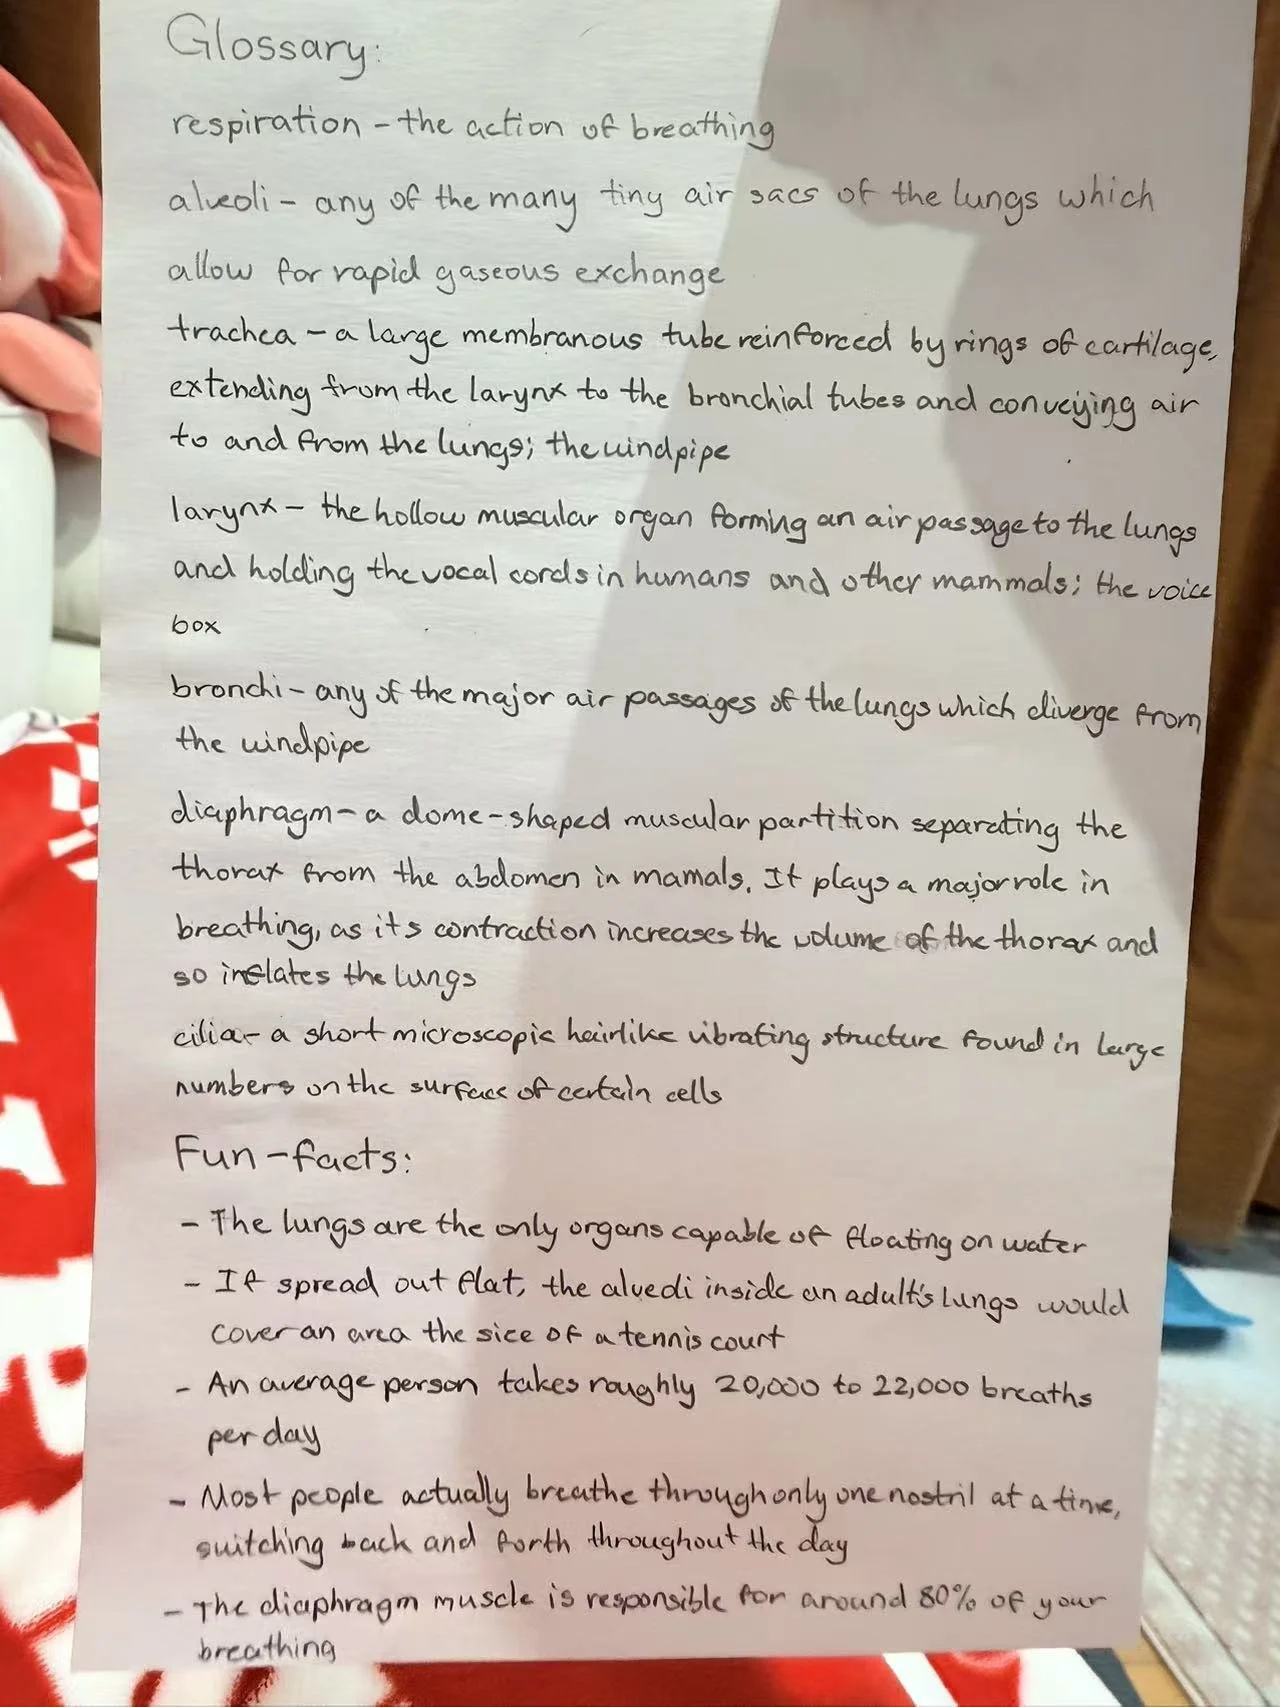 Glossary:
respiration - the action of breathing
alveoli - any of the many tiny air sacs of the lungs which
allow for rapid gaseous exchange
trachea - a large membranous tube reinforced by rings of cartilage,
extending from the larynx to the bronchial tubes and conveying air
to and from the lungs; the windpipe
larynx - the hollow muscular organ forming an air passage to the lungs
and holding the vocal cords in humans and other mammals; the voice
box
bronchi - any of the major air passages of the lungs which diverge from
the windpipe
diaphragm - a dome-shaped muscular partition separating the
thorax from the abdomen in mamals. It plays a major role in
breathing, as its contraction increases the volume of the thorax and
so inflates the lungs
cilia - a short microscopic hairlike vibrating structure found in large
numbers on the surface of certain cells
Fun-facts:
- The lungs are the only organs capable of floating on water
- If spread out flat, the alveoli inside an adult's lungs would
cover an area the sice of a tennis court
- An average person takes roughly 20,000 to 22,000 breaths
per day
- Most people actually breathe through only one nostril at a time,
switching back and forth throughout the day
- The diaphragm muscle is responsible for around 80% of your
breathing